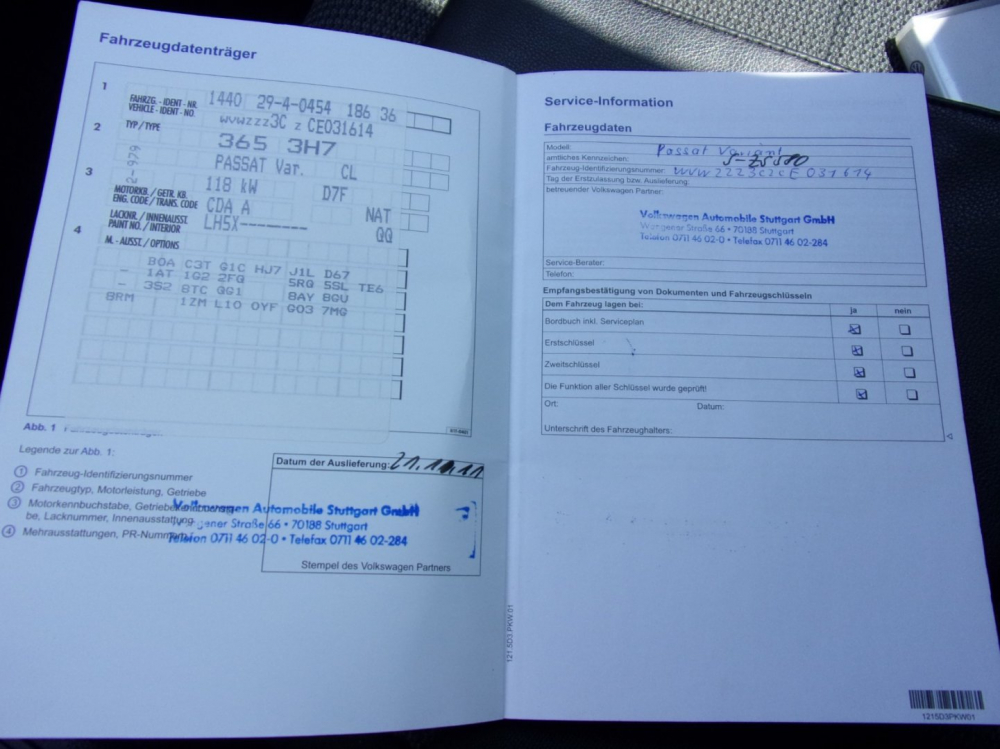 Fahrzeugdatenträger
1
FAHRZG. - IDENT - NR. 1440 29-4-0454 186 36
VEHICLE - IDENT - NO. WVWZZZ3C Z CE031614
2
TYP / TYPE 365 3H7
2-979
PASSAT Var. CL
3
118 kW D7F
MOTORKB. / GETR. KB.
ENG. CODE / TRANS. CODE CDA A NAT
LACKNR. / INNENAUSST. LH5X-------- QQ
PAINT NO. / INTERIOR
4
M. - AUSST. / OPTIONS
BOA C3T G1C HJ7 J1L D67
- 1AT 1G2 2FQ 5RQ 5SL TE6
- 3S2 8TC QG1 8AY 8GU
8RM 1ZM L10 0YF G03 7MG
Abb. 1
Legende zur Abb. 1:
1 Fahrzeug-Identifizierungsnummer
2 Fahrzeugtyp, Motorleistung, Getriebe
3 Motorkennbuchstabe, Getriebe
be, Lacknummer, Innenausstattung
4 Mehrausstattungen, PR-Nummern
Datum der Auslieferung: 21.11.11
Volkswagen Automobile Stuttgart GmbH
gener Straße 66 • 70188 Stuttgart
Telefon 0711 46 02-0 • Telefax 0711 46 02-284
Stempel des Volkswagen Partners
Service-Information
Fahrzeugdaten
Modell: Passat Variant
amtliches Kennzeichen:
Fahrzeug-Identifizierungsnummer: WVWZZZ3CZCE031614
Tag der Erstzulassung bzw. Auslieferung:
betreuender Volkswagen Partner:
Volkswagen Automobile Stuttgart GmbH
Wangener Straße 66 • 70188 Stuttgart
Telefon 0711 46 02-0 • Telefax 0711 46 02-284
Service-Berater:
Telefon:
Empfangsbestätigung von Dokumenten und Fahrzeugschlüsseln
Dem Fahrzeug lagen bei: ja nein
Bordbuch inkl. Serviceplan
Erstschlüssel
Zweitschlüssel
Die Funktion aller Schlüssel wurde geprüft!
Ort: Datum:
Unterschrift des Fahrzeughalters:
121.5D3.PKW.01
1215D3PKW01